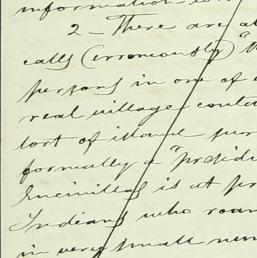 information
2 - There are at
calls (erroneously) "
persons in one of
real village
sort of island
formally a "presidi
Encinillas is at pr
Indians who roam
in very small num